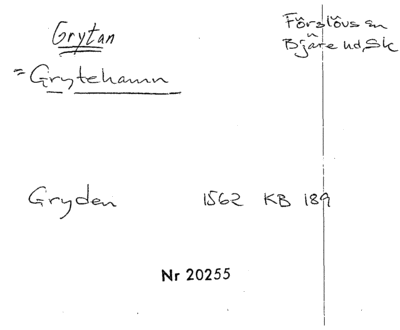 Grytan
Förslövs sn
Bjäre hd, Sk
= Grytehamn
Gryden 1562 KB 189
Nr 20255